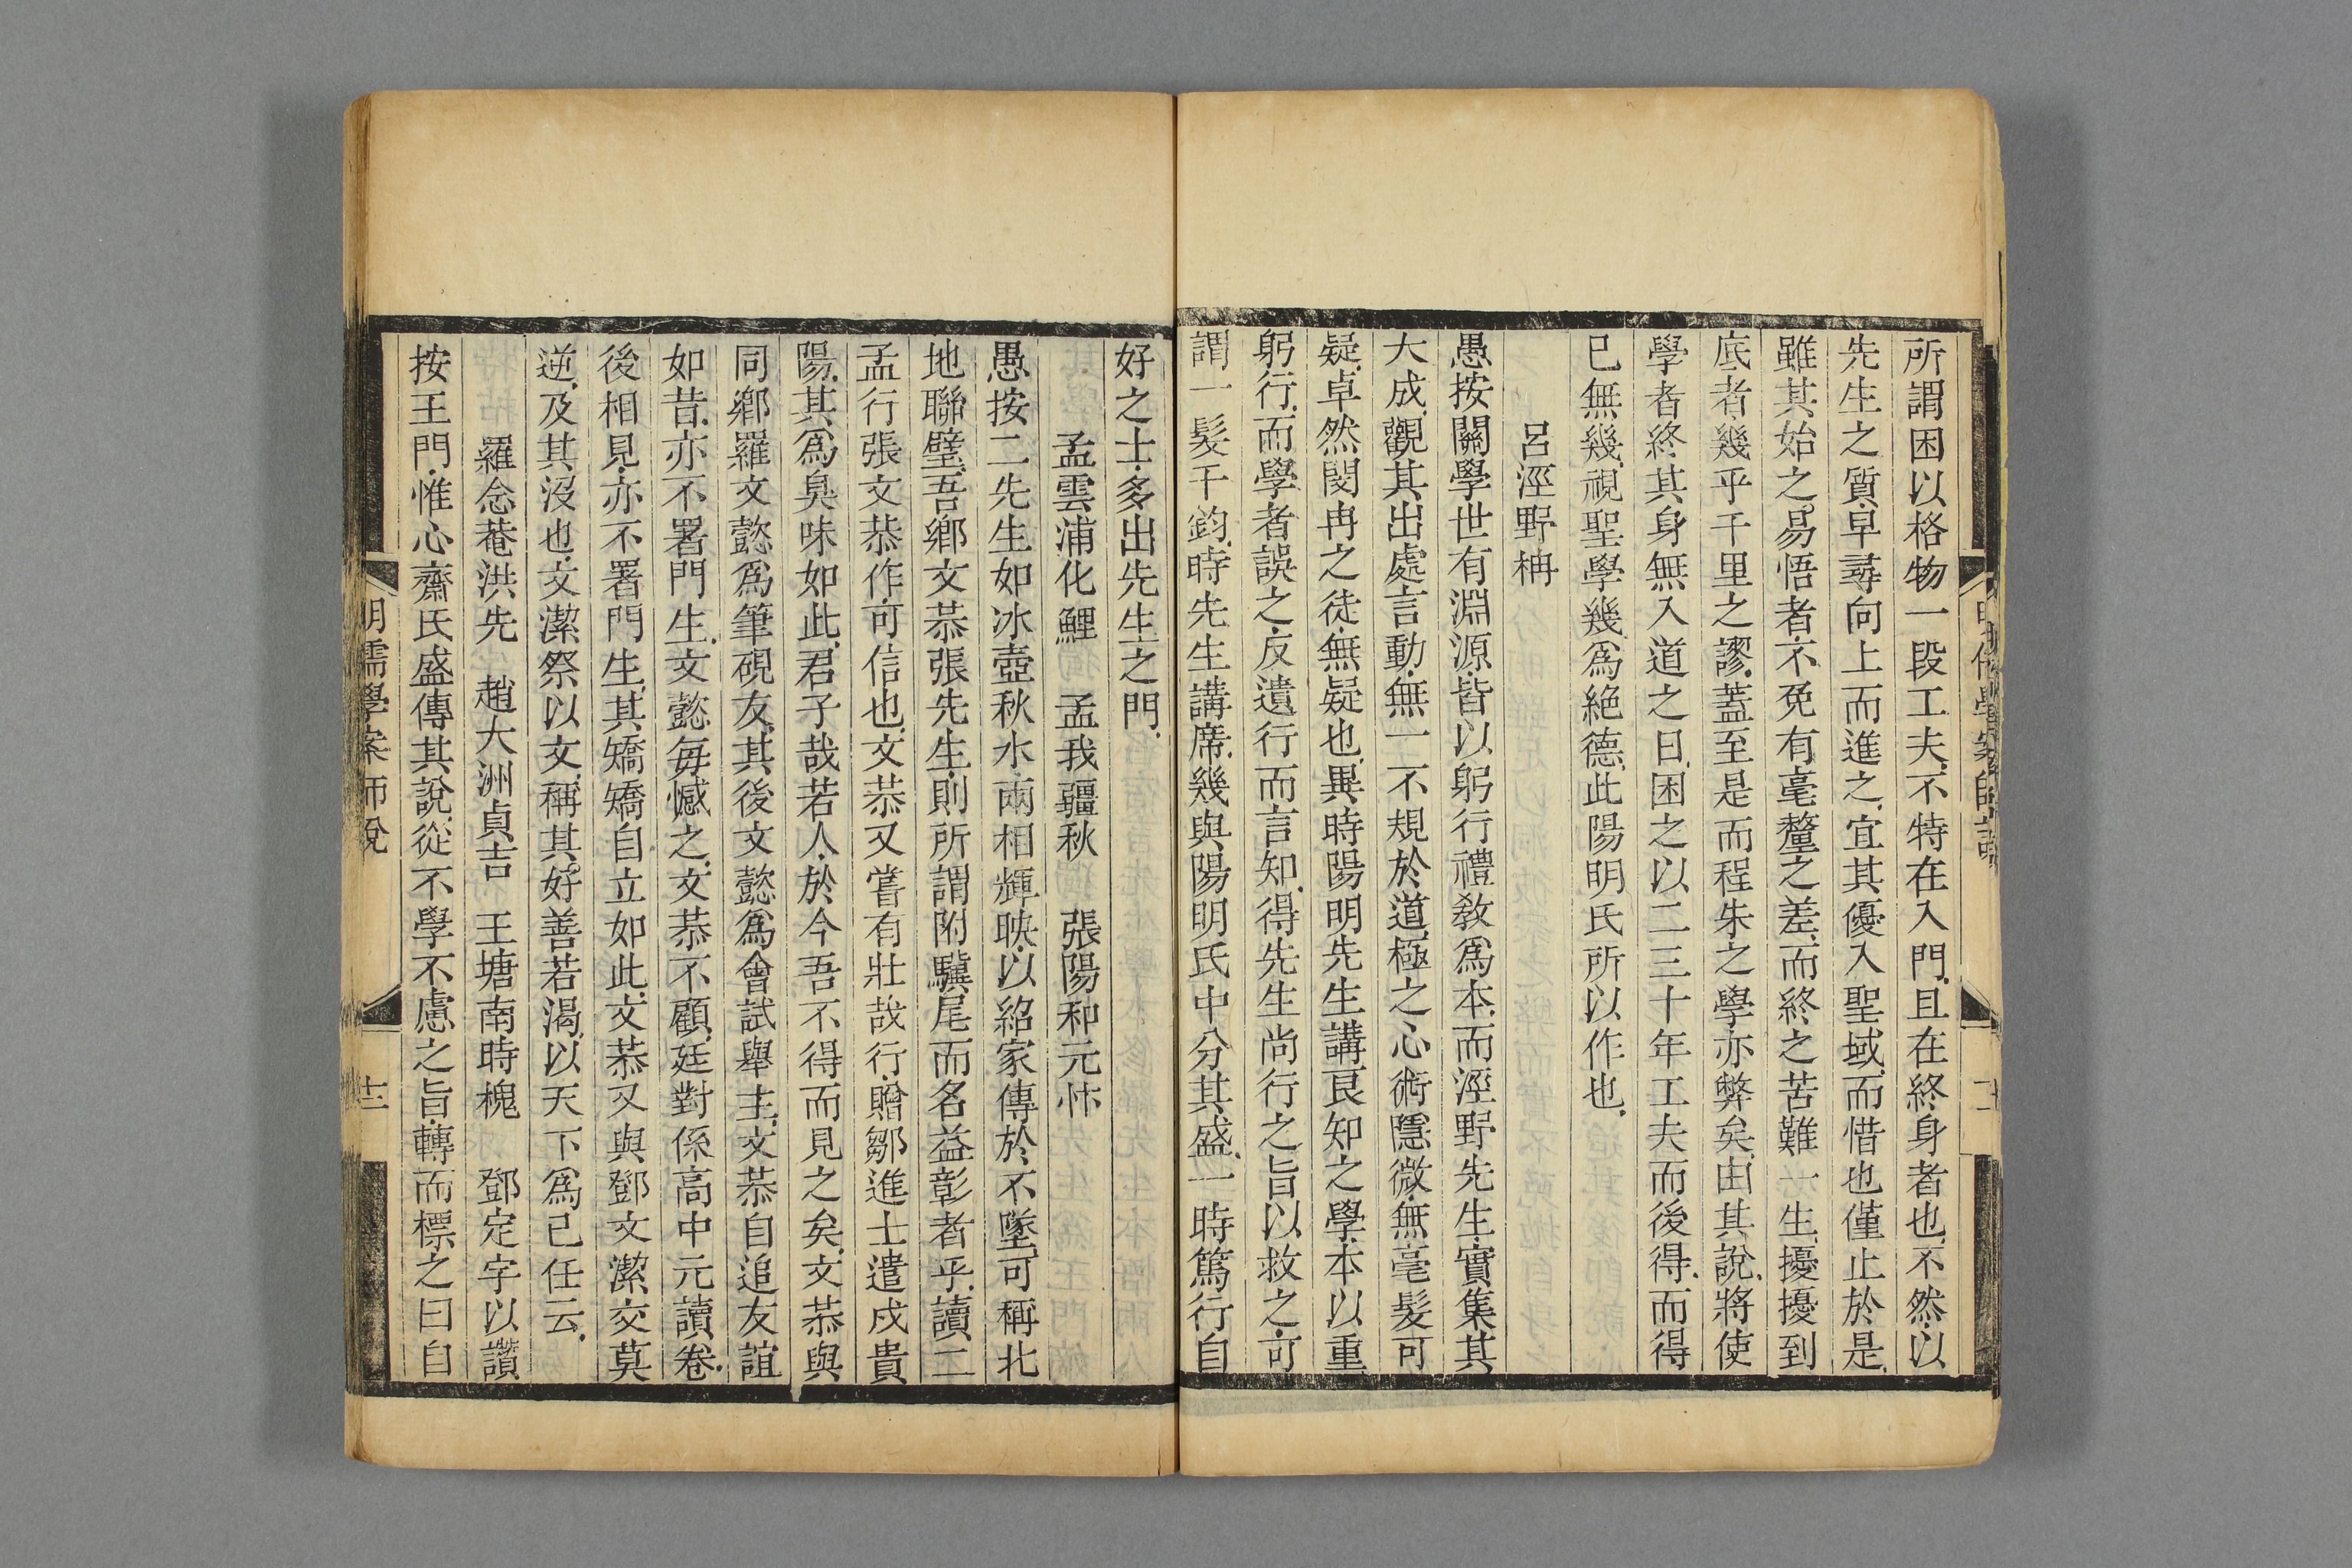 所謂困以格物一段工夫不特在入門且在終身者也不然以
先生之質早尋向上而進之宜其優入聖域而惜也僅止於是
雖其始之易悟者不免有毫釐之差而終之苦難一生擾擾到
底者幾乎千里之謬蓋至是而程朱之學亦弊矣由其說將使
學者終其身無入道之日困之以二三十年工夫而後得而得
已無幾視聖學幾爲絶德此陽明氏所以作也
呂涇野柟
愚按關學世有淵源皆以躬行禮敎爲本而涇野先生實集其
大成觀其出處言動無一不規於道極之心術隱微無毫髮可
疑卓然閔冉之徒無疑也異時陽明先生講良知之學本以重
躬行而學者誤之反遺行而言知得先生尚行之旨以救之可
謂一髮千鈞時先生講席幾與陽明氏中分其盛一時篤行自
好之士多出先生之門
孟雲浦化鯉　孟我疆秋　張陽和元忭
愚按二先生如冰壺秋水兩相輝映以紹家傳於不墜可稱北
地聯璧吾鄉文恭張先生則所謂附驥尾而名益彰者乎讀二
孟行張文恭作可信也文恭又嘗有壯哉行贈鄒進士遣戍貴
陽其爲臭味如此君子哉若人於今吾不得而見之矣文恭與
同鄉羅文懿爲筆硯友其後文懿爲會試舉主文恭自追友誼
如昔亦不署門生文懿每憾之文恭不顧廷對係高中元讀卷
後相見亦不署門生其矯矯自立如此文恭又與鄧文潔交莫
逆及其沒也文潔祭以文稱其好善若渴以天下爲己任云
羅念菴洪先　趙大洲貞吉　王塘南時槐　鄧定宇以讚
按王門惟心齋氏盛傳其說從不學不慮之旨轉而標之曰自
明儒學案師說
十二